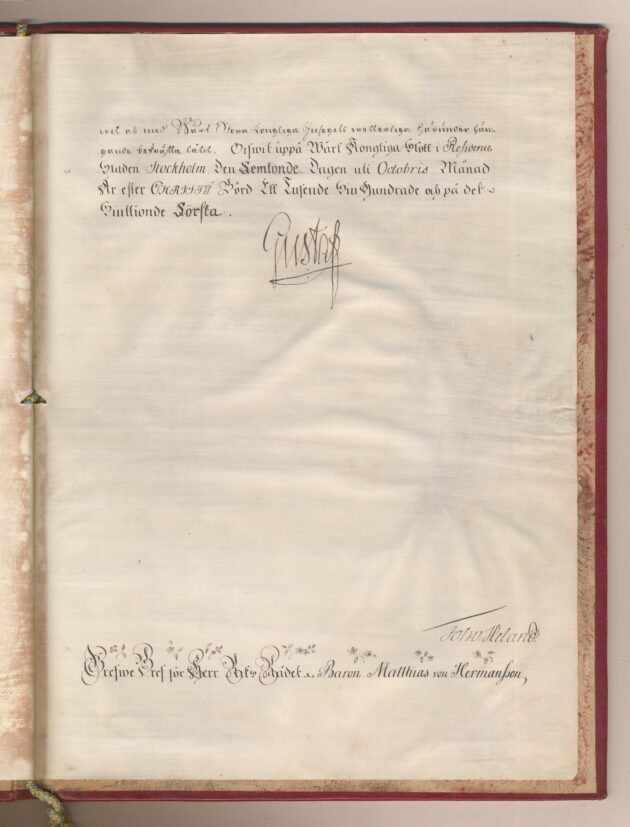 wel as med Wårt Stora Kongliga Insegels wetterliga härunder hän-
gande bekräfta låtit. Gifwit uppå Wårt Kongliga Slott i Residence
Staden Stockholm Den Femtonde Dagen uti Octobris Månad
År efter CHRISTI Börd Ett Tusende Siu Hundrade och på det
Siuttionde Första.
Gustaf
Joh. v. Heland.
Grefwe Bref för Herr Riks Rådet Baron Matthias von Hermansson,